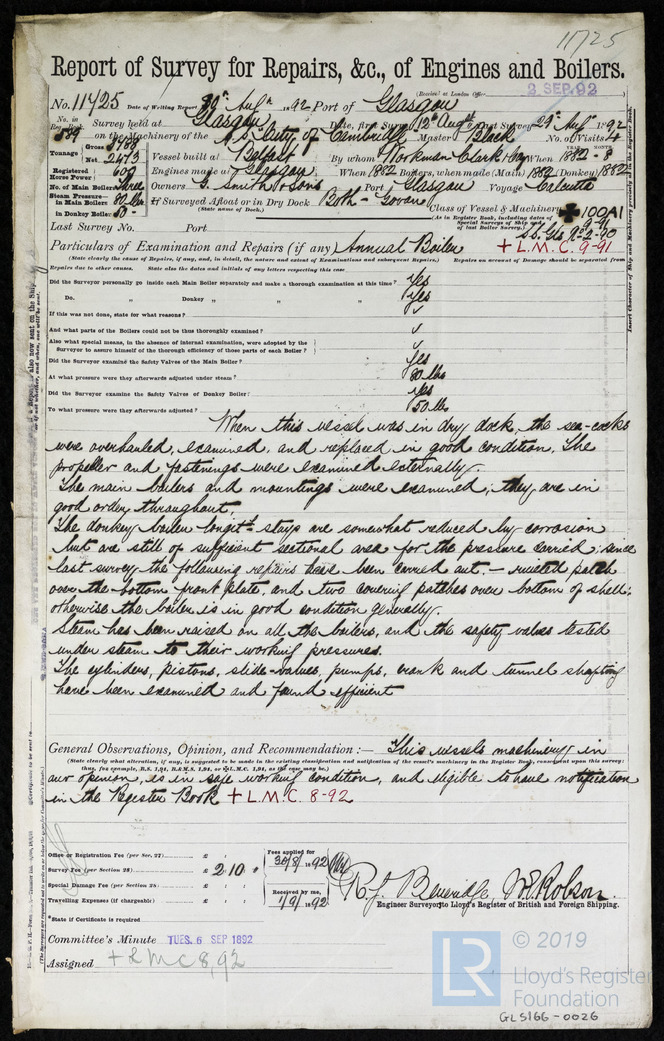 11725
Report of Survey for Repairs, &c., of Engines and Boilers.
(Received at London Office 2 SEP. 92
No. 11425 Date of Writing Report 30th Augt 1892 Port of Glasgow
No. in Reg. Book 539 Survey held at Glasgow Date, first Survey 12th Augt Last Survey 29th Augt 1892
on the Machinery of the S.S. "City of Cambridge" Master Black No. of Visits 4
Tonnage Gross 3788 Net 2473 Vessel built at Belfast By whom Workman Clark & Co When 1882 - 8
Registered Horse Power 600 Engines made at Glasgow When 1882 Boilers, when made (Main) 1882 (Donkey) 1882
No. of Main Boilers Three Owners G. Smith & Sons Port Glasgow Voyage Calcutta
Steam Pressure in Main Boilers 80 lbs If Surveyed Afloat or in Dry Dock Both - Govan
(State name of Dock.)
in Donkey Boiler 50 -
Class of Vessel & Machinery 100A1
(As in Register Book, including dates of Special Surveys of Ship and of last Boiler Survey) 9-91
S.S. Gls. No. 2-90
+ L.M.C. 9-91
Last Survey No. Port
Particulars of Examination and Repairs (if any) Annual Boiler
(State clearly the cause of Repairs, if any, and, in detail, the nature and extent of Examinations and subsequent Repairs.) Repairs on account of Damage should be separated from
Repairs due to other causes. State also the dates and initials of any letters respecting this case
Did the Surveyor personally go inside each Main Boiler separately and make a thorough examination at this time? Yes
Do. " Donkey " " " Yes
If this was not done, state for what reasons? ✓
And what parts of the Boilers could not be thus thoroughly examined? ✓
Also what special means, in the absence of internal examination, were adopted by the
Surveyor to assure himself of the thorough efficiency of those parts of each Boiler? ✓
Did the Surveyor examine the Safety Valves of the Main Boiler? Yes
At what pressure were they afterwards adjusted under steam? 80 lbs
Did the Surveyor examine the Safety Valves of Donkey Boiler? Yes
To what pressure were they afterwards adjusted? 50 lbs
When this vessel was in dry dock, the sea-cocks
were overhauled, examined, and replaced in good condition. The
propeller and fastenings were examined externally.
The main boilers and mountings were examined; they are in
good order throughout.
The donkey boiler longitl stays are somewhat reduced by corrosion
but are still of sufficient sectional area for the pressure carried; since
last survey the following repairs have been carried out. - riveted patch
over the bottom front plate, and two covering patches over bottom of shell;
otherwise the boiler is in good condition generally.
Steam has been raised on all the boilers, and the safety valves tested
under steam to their working pressures.
The cylinders, pistons, slide-valves, pumps, crank and tunnel shafting
have been examined and found efficient
General Observations, Opinion, and Recommendation:— This vessels machinery in
(State clearly what alteration, if any, is suggested to be made in the existing classification and notification of the vessel's machinery in the Register Book, consequent upon this survey:
thus, for example, B.S. 1,91, B.&M.S. 1,91, or L.M.C. 1,91, as the case may be.)
our opinion, is in safe working condition, and eligible to have notification
in the Register Book + L.M.C. 8-92
Office or Registration Fee (per Sec. 27) £
Survey Fee (per Section 28) £ 2.10.
Special Damage Fee (per Section 28) £
Travelling Expenses (if chargeable) £
*State if Certificate is required
Fees applied for 30/8/1892
Received by me, 1/9/1892
R. J. Beveridge, W. E. Robson.
Engineer Surveyor to Lloyd's Register of British and Foreign Shipping.
Committee's Minute TUES. 6 SEP 1892
Assigned + LMC 8,92
LR © 2019
Lloyd's Register
Foundation
GLS166-0026